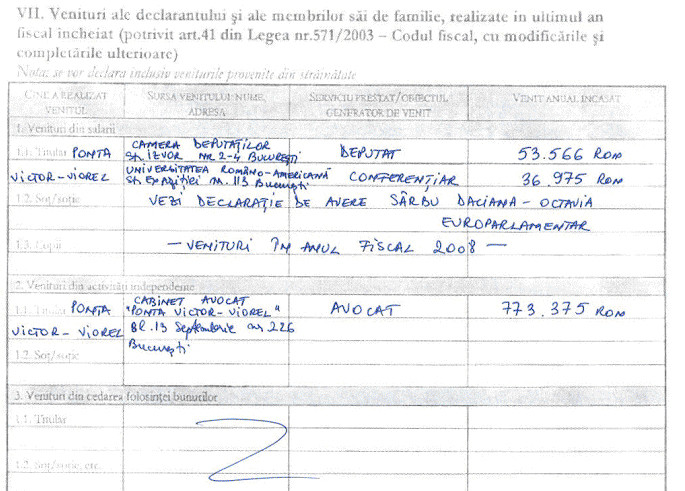 VII. Venituri ale declarantului şi ale membrilor săi de familie, realizate in ultimul an
fiscal incheiat (potrivit art.41 din Legea nr.571/2003 – Codul fiscal, cu modificările şi
completările ulterioare)
Nota: se vor declara inclusiv veniturile provenite din străinătate
CINE A REALIZAT VENITUL
SURSA VENITULUI: NUME, ADRESA
SERVICIU PRESTAT/OBIECTUL GENERATOR DE VENIT
VENIT ANUAL INCASAT
1. Venituri din salarii
1.1. Titular PONTA VICTOR-VIOREL
CAMERA DEPUTAŢILOR
St. IZVOR NR 2-4 BUCUREŞTI
DEPUTAT
53.566 RON
UNIVERSITATEA ROMÂNO-AMERICANĂ
St. Expoziţiei nr. 113 Bucureşti
CONFERENŢIAR
36.975 RON
1.2. Soţ/soţie
VEZI DECLARAŢIE DE AVERE SÂRBU DACIANA-OCTAVIA
EUROPARLAMENTAR
1.3. Copii
— VENITURI ÎN ANUL FISCAL 2008 —
2. Venituri din activităţi independente
1.1. Titular PONTA VICTOR-VIOREL
CABINET AVOCAT
"PONTA VICTOR-VIOREL"
Bl. 13 Septembrie nr 226
Bucureşti
AVOCAT
773.375 RON
1.2. Soţ/soţie
3. Venituri din cedarea folosinţei bunurilor
1.1. Titular
1.2. Soţ/soţie, etc.